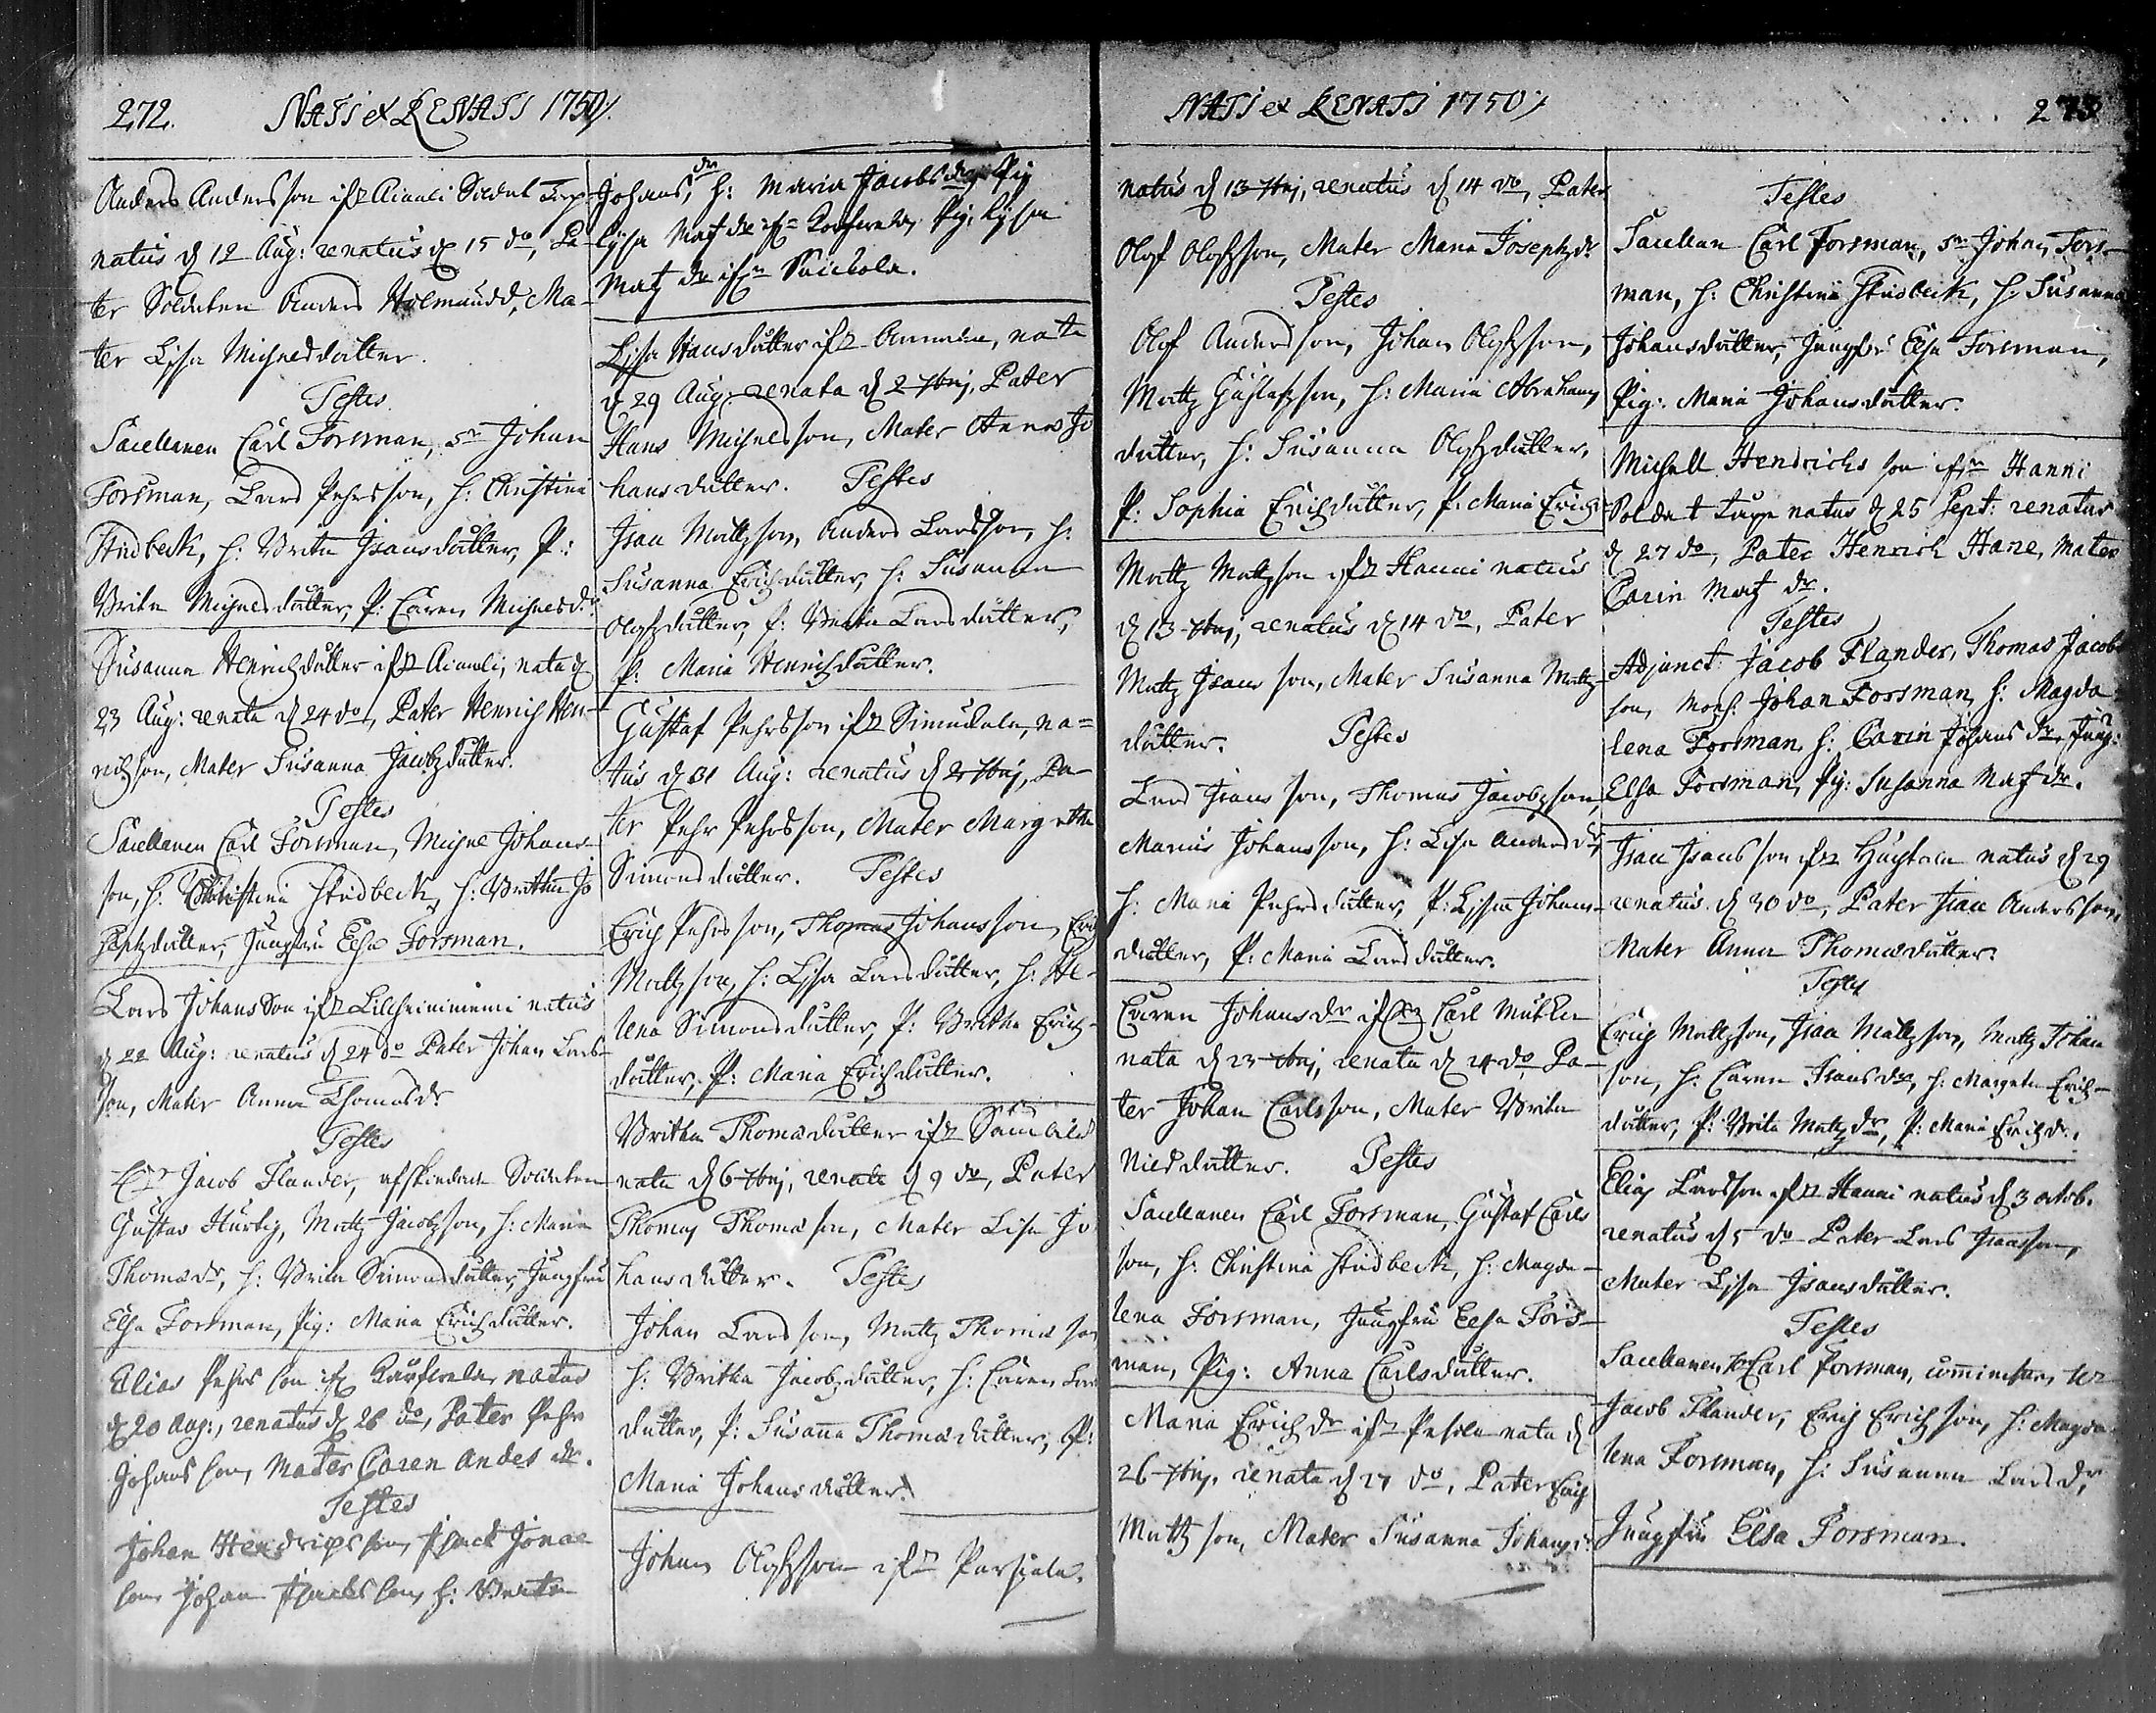 272. NATI et RENATI 1750/.
Anders Andersson ifrn Aimali Soldat Torp
natus d 12 Aug: renatus d 15 do, Pa-
ter Soldaten Anders Holmudd, Ma-
ter Lisa Michelsdåtter.
Testes
Sacellanen Carl Forsman, Sn Johan
Forsman, Lars Pehrsson, h: Christina
Stidbeck, h: Brita Isacsdåtter, P:
Brita Michelsdåtter, P: Caren Michelsdr
Susanna Henrichdåtter ifrn Aimali, nata d
23 Aug: renata d 24 do, Pater Henrich Hen-
richson, Mater Susanna Jacobsdåtter.
Testes
Sacellanen Carl Forsman, Michel Johans-
son, h: Christina Stidbeck, h: Britha Jo
sephsdåtter, Jungfru Elsa Forsman.
Lars Johansson ifrn natus
d 22 Aug: renatus d 24 do Pater Johan Lars-
son, Mater Anna Thomasdr
Testes
Hr Jacob Flander, afskedade Soldaten
Gustav Hurtig, Matz Jacobsson, h: Maria
Thomasdr, h: Brita Simonsdåtter, Jungfru
Elsa Forsman, Pig: Maria Erichsdåtter.
Elias Pehrs son ifrn natus
d 20 Aug:, renatus d 26 do, Pater Pehr
Johans son, Mater Caren Anders dr.
Testes
Johan Hendrichs son, Isack Jonae
son Johan son, h: Brita
Johans dr, h: Maria Jacobs dr, Pig
Lysa Matz dr ifrn Pig. Lysa
Matz dr ifrn
Lisa Hansdåtter ifrn nata
d 29 Aug: renata d 2 7brj, Pater
Hans Michelsson, Mater Anna Jo
hansdåtter. Testes
Isac Mattzson, Anders Larsson, h:
Susanna Erichsdåtter, h: Susanna
Olofsdåtter, P: Brita Larsdåtter,
P: Maria Henrichdåtter.
Gustaf Pehrsson ifrn na=
tus d 31 Aug: renatus d 2 7brj, Pa-
ter Pehr Pehrsson, Mater Margretha
Simonsdåtter. Testes
Erich Pehrsson, Thomas Johansson, Erich
Mattzson, h: Lisa Larsdåtter, h: He-
lena Simonsdåtter, P: Britha Erich-
dåtter, P: Maria Erichdåtter.
Britha Thomasdåtter ifrn
nata d 6 7brj, renata d 9 do, Pater
Thomas Thomasson, Mater Lisa Jo
hansdåtter. Testes
Johan Larsson, Mattz Thomasson
h: Britha Jacobsdåtter, h: Caren Lars
dåtter, P: Susanna Thomasdåtter, P:
Maria Johansdåtter.
Johan Olofsson ifrn
NATI et RENATI 1750/. 273
natus d 13 7brj, renatus d 14 do, Pater
Olof Olofsson, Mater Maria Josephsdr
Testes
Olof Andersson, Johan Olofsson,
Mattz Gustafsson, h: Maria Abrahams
dåtter, h: Susanna Olofsdåtter,
P: Sophia Erichdåtter, P: Maria Erich-
Mattz Mattzson ifrn Hanni natus
d 13 7brj, renatus d 14 do, Pater
Mattz Isacsson, Mater Susanna Mattz-
dåtter. Testes
Lars Isacsson, Thomas Jacobsson,
Marcus Johansson, h: Lisa Andersdr,
h: Maria Pehrsdåtter, P: Lisa Johans-
dåtter, P: Maria Larsdåtter.
Caren Johansdr ifrn Carl
nata d 23 7brj, renata d 24 do, Pa-
ter Johan Carlsson, Mater Brita
Nilsdåtter. Testes
Sacellanen Carl Forsman, Gustaf Carls
son, h: Christina Stidbeck, h: Magda-
lena Forsman, Jungfru Elsa Fors-
man, Pig: Anna Carlsdåtter.
Maria Erichdr ifrn nata d
26 7brj, renata d 27 do, Pater Erich
Mattzson, Mater Susanna Johansdr
Testes
Sacellan Carl Forsman, Sn Johan Fors-
man, h: Christina Stidbeck, h: Susanna
Johansdåtter, Jungfru Elsa Forsman,
Pig: Maria Johansdåtter.
Michell Hendrichs son ifrn Hanni
Soldat torp natus d 25 Sept: renatus
d 27 do, Pater Henrich Hane, Mater
Carin Matz dr.
Testes
Adjunct: Jacob Flander, Thomas Jacobs
son, Mons. Johan Forsman, h: Magda
lena Forsman, h: Carin Johans dr, Jung:
Elsa Forsman, Pig: Susanna Matz dr.
Isac Isacsson ifrn natus d 29
renatus d 30 do, Pater Isac Andersson,
Mater Anna Thomasdåtter.
Testes
Erich Mattzson, Isac Mattzson, Mattz Johan
son, h: Caren Isacsdr, h: Margreta Erich-
dåtter, P: Brita Mattzdr, P: Maria Erichdr.
Elias Larsson ifrn Hanni natus d 3 octob.
renatus d 5 do Pater Lars Isacsson,
Mater Lisa Isacsdåtter.
Testes
Sacellanen Hr Carl Forsman, Hr
Jacob Flander, Erich Erichson, h: Magda-
lena Forsman, h: Susanna Larsdr,
Jungfru Elsa Forsman.